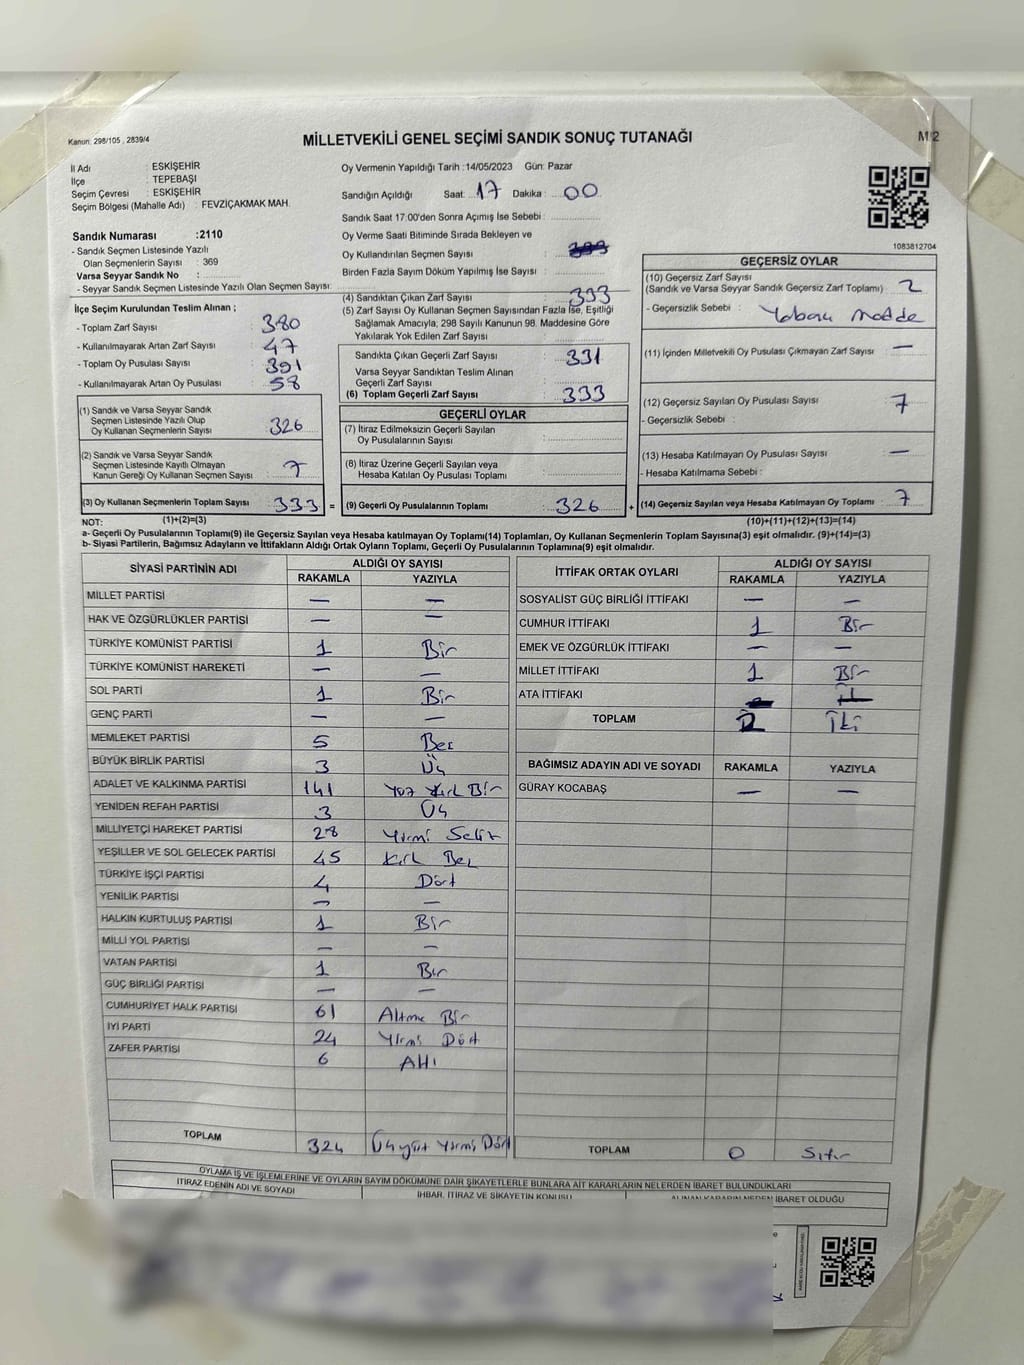 Kanun: 298/105 , 2839/4
MİLLETVEKİLİ GENEL SEÇİMİ SANDIK SONUÇ TUTANAĞI
M 2
İl Adı : ESKİŞEHİR
İlçe : TEPEBAŞI
Seçim Çevresi : ESKİŞEHİR
Seçim Bölgesi (Mahalle Adı) : FEVZİÇAKMAK MAH.
Sandık Numarası :2110
- Sandık Seçmen Listesinde Yazılı
Olan Seçmenlerin Sayısı : 369
Varsa Seyyar Sandık No :
- Seyyar Sandık Seçmen Listesinde Yazılı Olan Seçmen Sayısı:
İlçe Seçim Kurulundan Teslim Alınan ;
- Toplam Zarf Sayısı : 380
- Kullanılmayarak Artan Zarf Sayısı : 47
- Toplam Oy Pusulası Sayısı : 391
- Kullanılmayarak Artan Oy Pusulası : 58
(1) Sandık ve Varsa Seyyar Sandık
Seçmen Listesinde Yazılı Olup
Oy Kullanan Seçmenlerin Sayısı : 326
(2) Sandık ve Varsa Seyyar Sandık
Seçmen Listesinde Kayıtlı Olmayan
Kanun Gereği Oy Kullanan Seçmen Sayısı : 7
(3) Oy Kullanan Seçmenlerin Toplam Sayısı : 333 =
Oy Vermenin Yapıldığı Tarih :14/05/2023 Gün: Pazar
Sandığın Açıldığı Saat: 17 Dakika : 00
Sandık Saat 17:00'den Sonra Açımış İse Sebebi :
Oy Verme Saati Bitiminde Sırada Bekleyen ve
Oy Kullandırılan Seçmen Sayısı :
Birden Fazla Sayım Döküm Yapılmış İse Sayısı :
(4) Sandıktan Çıkan Zarf Sayısı : 333
(5) Zarf Sayısı Oy Kullanan Seçmen Sayısından Fazla İse, Eşitliği
Sağlamak Amacıyla, 298 Sayılı Kanunun 98. Maddesine Göre
Yakılarak Yok Edilen Zarf Sayısı :
Sandıkta Çıkan Geçerli Zarf Sayısı : 331
Varsa Seyyar Sandıktan Teslim Alınan
Geçerli Zarf Sayısı :
(6) Toplam Geçerli Zarf Sayısı : 333
GEÇERLİ OYLAR
(7) İtiraz Edilmeksizin Geçerli Sayılan
Oy Pusulalarının Sayısı :
(8) İtiraz Üzerine Geçerli Sayılan veya
Hesaba Katılan Oy Pusulası Toplamı :
(9) Geçerli Oy Pusulalarının Toplamı : 326 +
1083812704
GEÇERSİZ OYLAR
(10) Geçersiz Zarf Sayısı
(Sandık ve Varsa Seyyar Sandık Geçersiz Zarf Toplamı) : 2
- Geçersizlik Sebebi : Yabancı Madde
(11) İçinden Milletvekili Oy Pusulası Çıkmayan Zarf Sayısı : —
(12) Geçersiz Sayılan Oy Pusulası Sayısı : 7
- Geçersizlik Sebebi :
(13) Hesaba Katılmayan Oy Pusulası Sayısı : —
- Hesaba Katılmama Sebebi :
(14) Geçersiz Sayılan veya Hesaba Katılmayan Oy Toplamı : 7
NOT: (1)+(2)=(3) (10)+(11)+(12)+(13)=(14)
a- Geçerli Oy Pusulalarının Toplamı(9) ile Geçersiz Sayılan veya Hesaba Katılmayan Oy Toplamı(14) Toplamları, Oy Kullanan Seçmenlerin Toplam Sayısına(3) eşit olmalıdır. (9)+(14)=(3)
b- Siyasi Partilerin, Bağımsız Adayların ve İttifakların Aldığı Ortak Oyların Toplamı, Geçerli Oy Pusulalarının Toplamına(9) eşit olmalıdır.
SİYASİ PARTİNİN ADI ALDIĞI OY SAYISI
RAKAMLA YAZIYLA
MİLLET PARTİSİ — —
HAK VE ÖZGÜRLÜKLER PARTİSİ — —
TÜRKİYE KOMÜNİST PARTİSİ 1 Bir
TÜRKİYE KOMÜNİST HAREKETİ — —
SOL PARTİ 1 Bir
GENÇ PARTİ — —
MEMLEKET PARTİSİ 5 Beş
BÜYÜK BİRLİK PARTİSİ 3 Üç
ADALET VE KALKINMA PARTİSİ 141 Yüz Kırk Bir
YENİDEN REFAH PARTİSİ 3 Üç
MİLLİYETÇİ HAREKET PARTİSİ 28 Yirmi Sekiz
YEŞİLLER VE SOL GELECEK PARTİSİ 45 Kırk Beş
TÜRKİYE İŞÇİ PARTİSİ 4 Dört
YENİLİK PARTİSİ — —
HALKIN KURTULUŞ PARTİSİ 1 Bir
MİLLİ YOL PARTİSİ — —
VATAN PARTİSİ 1 Bir
GÜÇ BİRLİĞİ PARTİSİ — —
CUMHURİYET HALK PARTİSİ 61 Altmış Bir
İYİ PARTİ 24 Yirmi Dört
ZAFER PARTİSİ 6 Altı
TOPLAM 324 Üçyüz Yirmi Dört
İTTİFAK ORTAK OYLARI ALDIĞI OY SAYISI
RAKAMLA YAZIYLA
SOSYALİST GÜÇ BİRLİĞİ İTTİFAKI — —
CUMHUR İTTİFAKI 1 Bir
EMEK VE ÖZGÜRLÜK İTTİFAKI — —
MİLLET İTTİFAKI 1 Bir
ATA İTTİFAKI
TOPLAM 2 İki
BAĞIMSIZ ADAYIN ADI VE SOYADI RAKAMLA YAZIYLA
GÜRAY KOCABAŞ — —
TOPLAM 0 Sıfır
OYLAMA İŞ VE İŞLEMLERİNE VE OYLARIN SAYIM DÖKÜMÜNE DAİR ŞİKAYETLERLE BUNLARA AİT KARARLARIN NELERDEN İBARET BULUNDUKLARI
İTİRAZ EDENİN ADI VE SOYADI İHBAR, İTİRAZ VE ŞİKAYETİN KONUSU ALINAN KARARIN NEDEN İBARET OLDUĞU